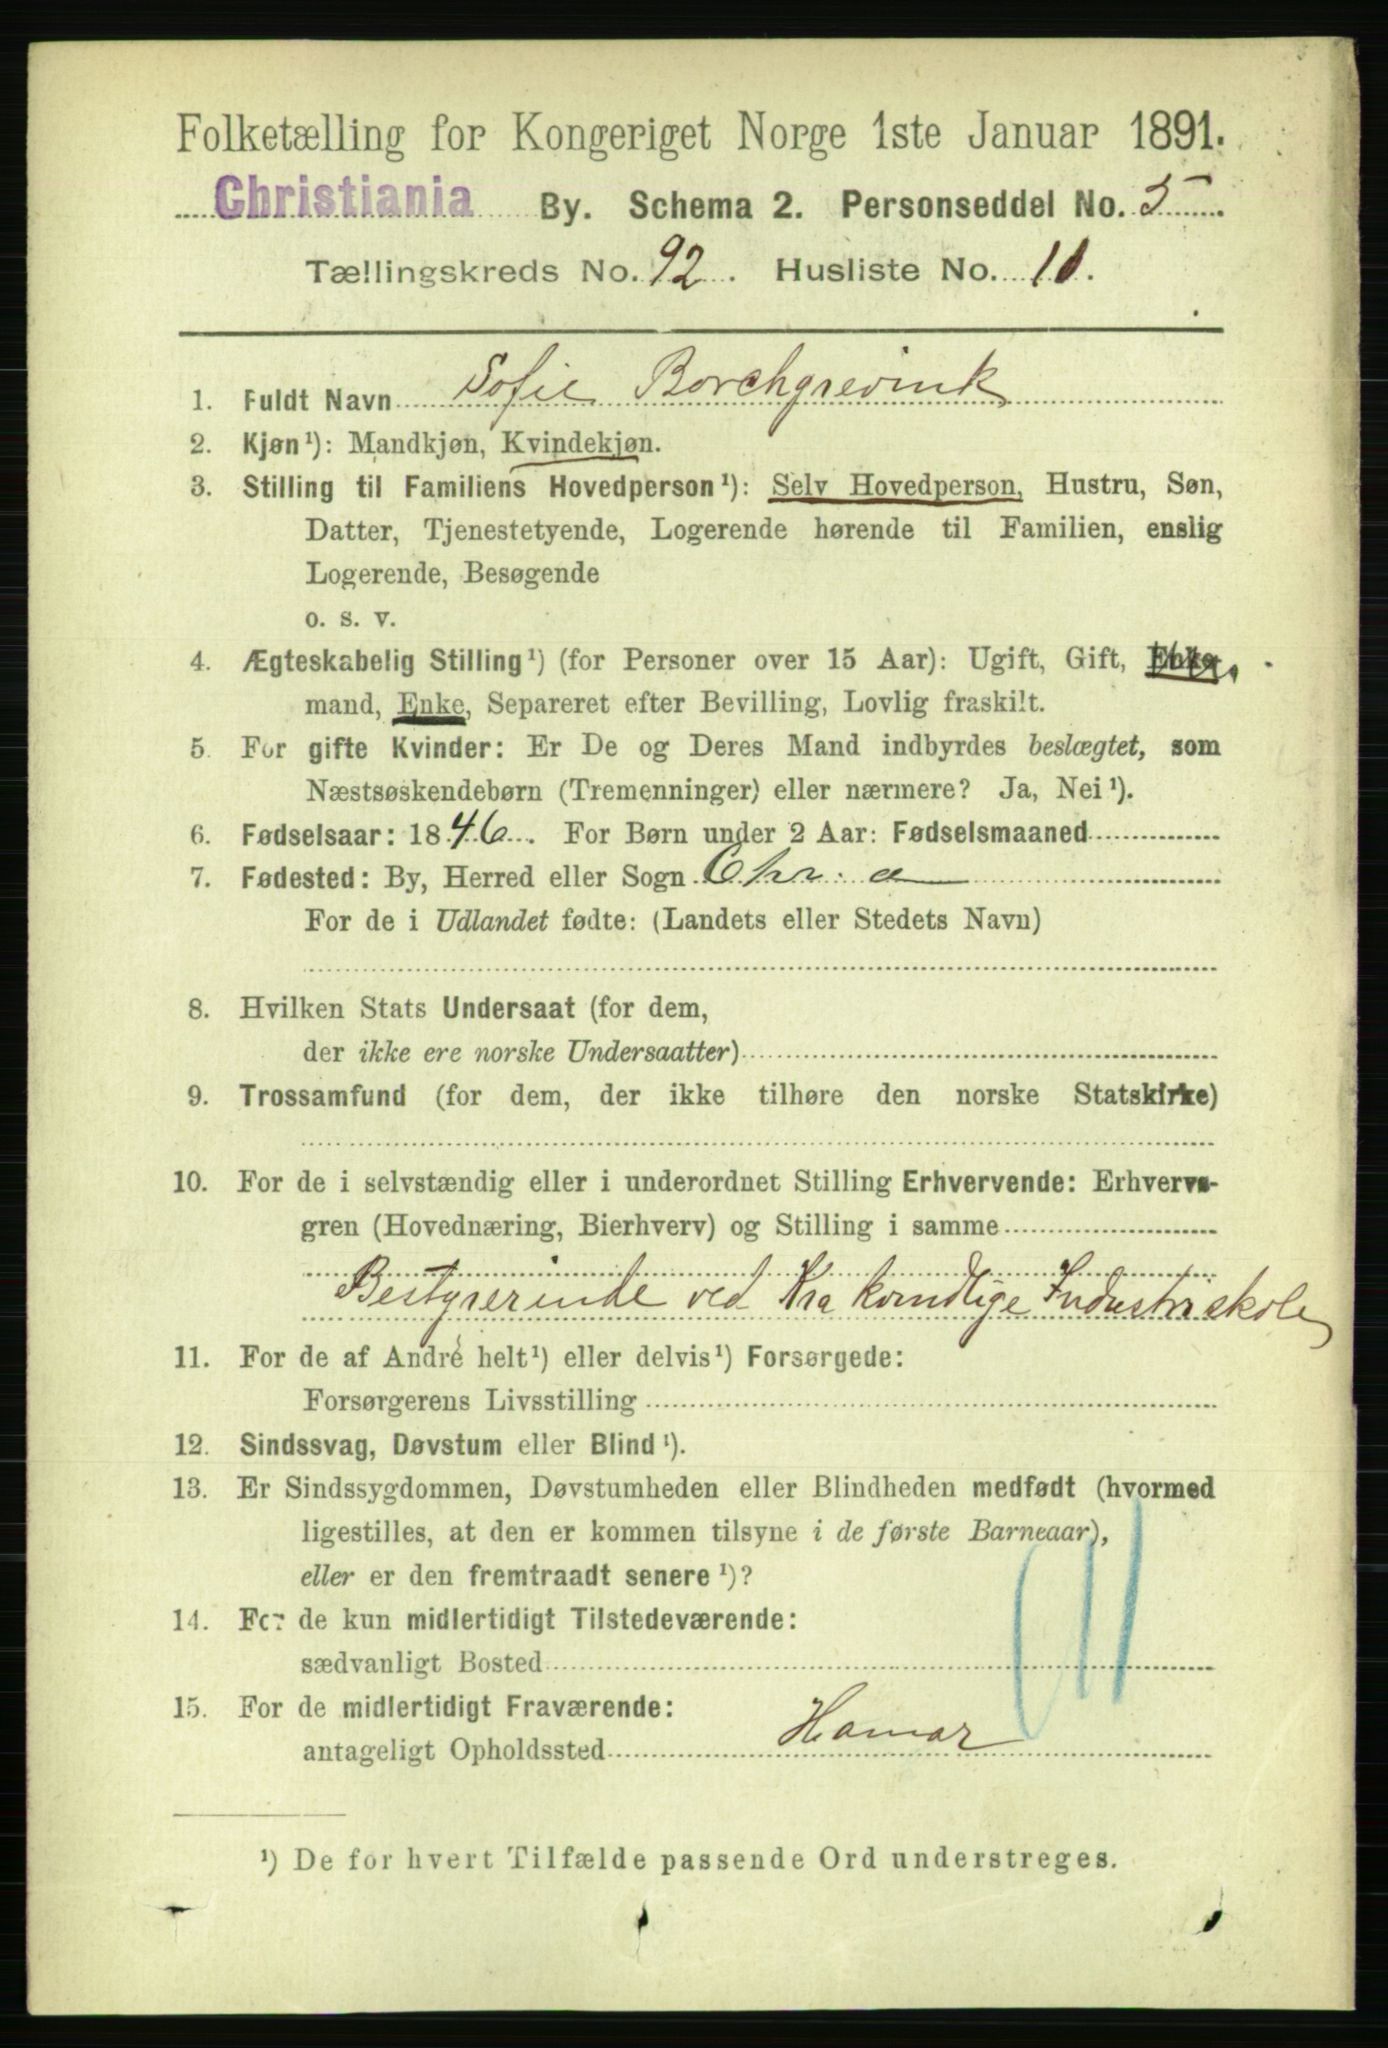 Folketælling for Kongeriget Norge 1ste Januar 1891.
Christiania By. Schema 2. Personseddel No. 5
Tællingskreds No. 92. Husliste No. 10.
1. Fuldt Navn Sofie Borchgrevink
2. Kjøn¹): Mandkjøn, Kvindekjøn.
3. Stilling til Familiens Hovedperson¹): Selv Hovedperson, Hustru, Søn,
Datter, Tjenestetyende, Logerende hørende til Familien, enslig
Logerende, Besøgende
o. s. v.
4. Ægteskabelig Stilling¹) (for Personer over 15 Aar): Ugift, Gift, Enke-
mand, Enke, Separeret efter Bevilling, Lovlig fraskilt.
5. For gifte Kvinder: Er De og Deres Mand indbyrdes beslægtet, som
Næstsøskendebørn (Tremenninger) eller nærmere? Ja, Nei¹).
6. Fødselsaar: 1846. For Børn under 2 Aar: Fødselsmaaned
7. Fødested: By, Herred eller Sogn Chr.a
For de i Udlandet fødte: (Landets eller Stedets Navn)
8. Hvilken Stats Undersaat (for dem,
der ikke ere norske Undersaatter)
9. Trossamfund (for dem, der ikke tilhøre den norske Statskirke)
10. For de i selvstændig eller i underordnet Stilling Erhvervende: Erhvervs-
gren (Hovednæring, Bierhverv) og Stilling i samme
Bestyrerinde ved Kra kvindlige Industriskole
11. For de af André helt¹) eller delvis¹) Forsørgede:
Forsørgerens Livsstilling
12. Sindssvag, Døvstum eller Blind¹).
13. Er Sindssygdommen, Døvstumheden eller Blindheden medfødt (hvormed
ligestilles, at den er kommen tilsyne i de første Barneaar),
eller er den fremtraadt senere¹)?
14. For de kun midlertidigt Tilstedeværende:
sædvanligt Bosted
15. For de midlertidigt Fraværende:
antageligt Opholdssted Hamar
¹) De for hvert Tilfælde passende Ord understreges.